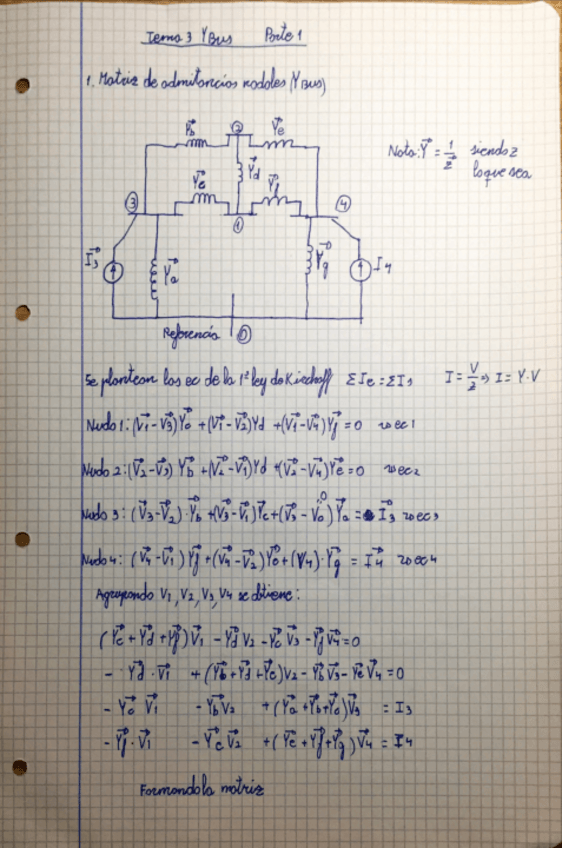 Tema 3 YBUS Parte 1
1. Matriz de admitancias nodales (YBUS)
Yb
2
Ye
Nota: Y = 1/Z siendo z
lo que sea
Yc
Yd
Yf
3
1
4
I3
Ya
Yg
I4
Referencia 0
Se plantean las ec de la 1ª ley de Kirchoff ΣIe = ΣIs I = V/Z ⇒ I = Y·V
Nudo 1: (V1-V3)Yc + (V1-V2)Yd + (V1-V4)Yf = 0 ec1
Nudo 2: (V2-V3)Yb + (V2-V1)Yd + (V2-V4)Ye = 0 ec2
Nudo 3: (V3-V2)·Yb + (V3-V1)Yc + (V3-V0)Ya = I3 ec3
0
Nudo 4: (V4-V1)Yf + (V4-V2)Ye + (V4)·Yg = I4 ec4
Agrupando V1, V2, V3, V4 se obtiene:
(Yc + Yd + Yf)V1 - YdV2 - YcV3 - YfV4 = 0
- Yd·V1 + (Yb + Yd + Ye)V2 - YbV3 - YeV4 = 0
- Yc V1 - YbV2 + (Ya + Yb + Yc)V3 = I3
- Yf·V1 - YeV2 + (Ye + Yf + Yg)V4 = I4
Formando la matriz